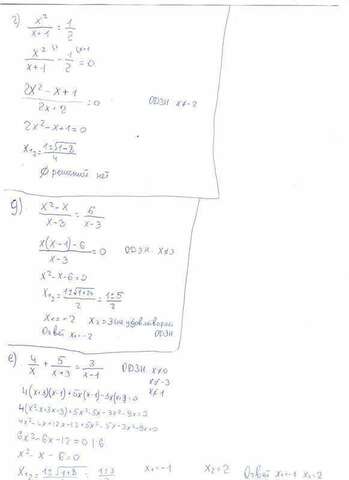 г) x²/(x+1) = 1/2
x²/(x+1) - 1/2 = 0
(2x² - x + 1)/(2x + 2) = 0 ОДЗН x≠-2
2x² - x + 1 = 0
x₁,₂ = (1±√1-8)/4
∅ решений нет
д) (x² - x)/(x-3) = 6/(x-3)
(x(x-1) - 6)/(x-3) = 0 ОДЗН x≠3
x² - x - 6 = 0
x₁,₂ = (1±√1+24)/2 = (1±5)/2
x₁ = -2 x₂ = 3 не удовлетворяет ОДЗН
Ответ x₁ = -2
е) 4/x + 5/(x+3) = 3/(x-1) ОДЗН x≠0
x≠-3
x≠1
4(x+3)(x-1) + 5x(x-1) - 3x(x+3) = 0
4(x²+3x-x-3) + 5x² - 5x - 3x² - 9x = 0
4x² - 4x + 12x - 12 + 5x² - 5x - 3x² - 9x = 0
6x² - 6x - 12 = 0 | 6
x² - x - 6 = 0
x₁,₂ = (1±√1+8)/2 = (1±3)/2 x₁ = -1 x₂ = 2 Ответ x₁ = -1 x₂ = 2